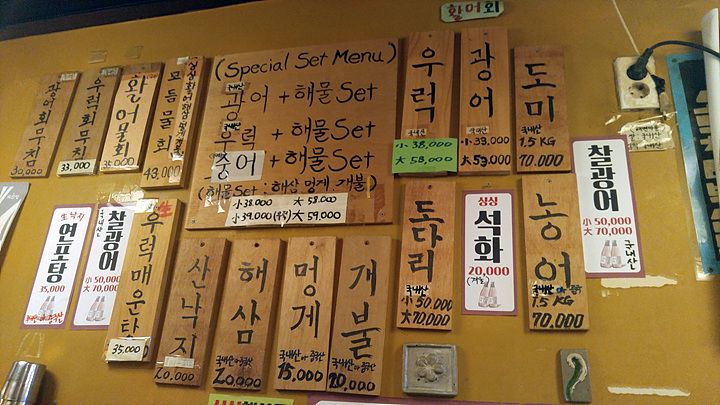 활어회
광어회무침
30,000
우럭회무침
33,000
활어물회
35,000
모듬물회
43,000
(Special Set Menu)
국내산
광어 + 해물Set
국내산
우럭 + 해물Set
숭어 + 해물Set
(해물Set : 해삼 멍게 개불)
小 38,000 大 58,000
小 39,000 (광어) 大 59,000
우럭
小 38,000
大 58,000
광어
국내산
小 39,000
大 59,000
도미
국내산
1.5 KG
70,000
찰광어
小 50,000
大 70,000
국내산
산낙지
연포탕
35,000
국내산
찰광어
小 50,000
大 70,000
우럭매운탕
35,000
산낙지
20,000
해삼
20,000
멍게
15,000
개불
20,000
도다리
국내산
小 50,000
大 70,000
싱싱
석화
20,000
농어
1.5 KG
70,000